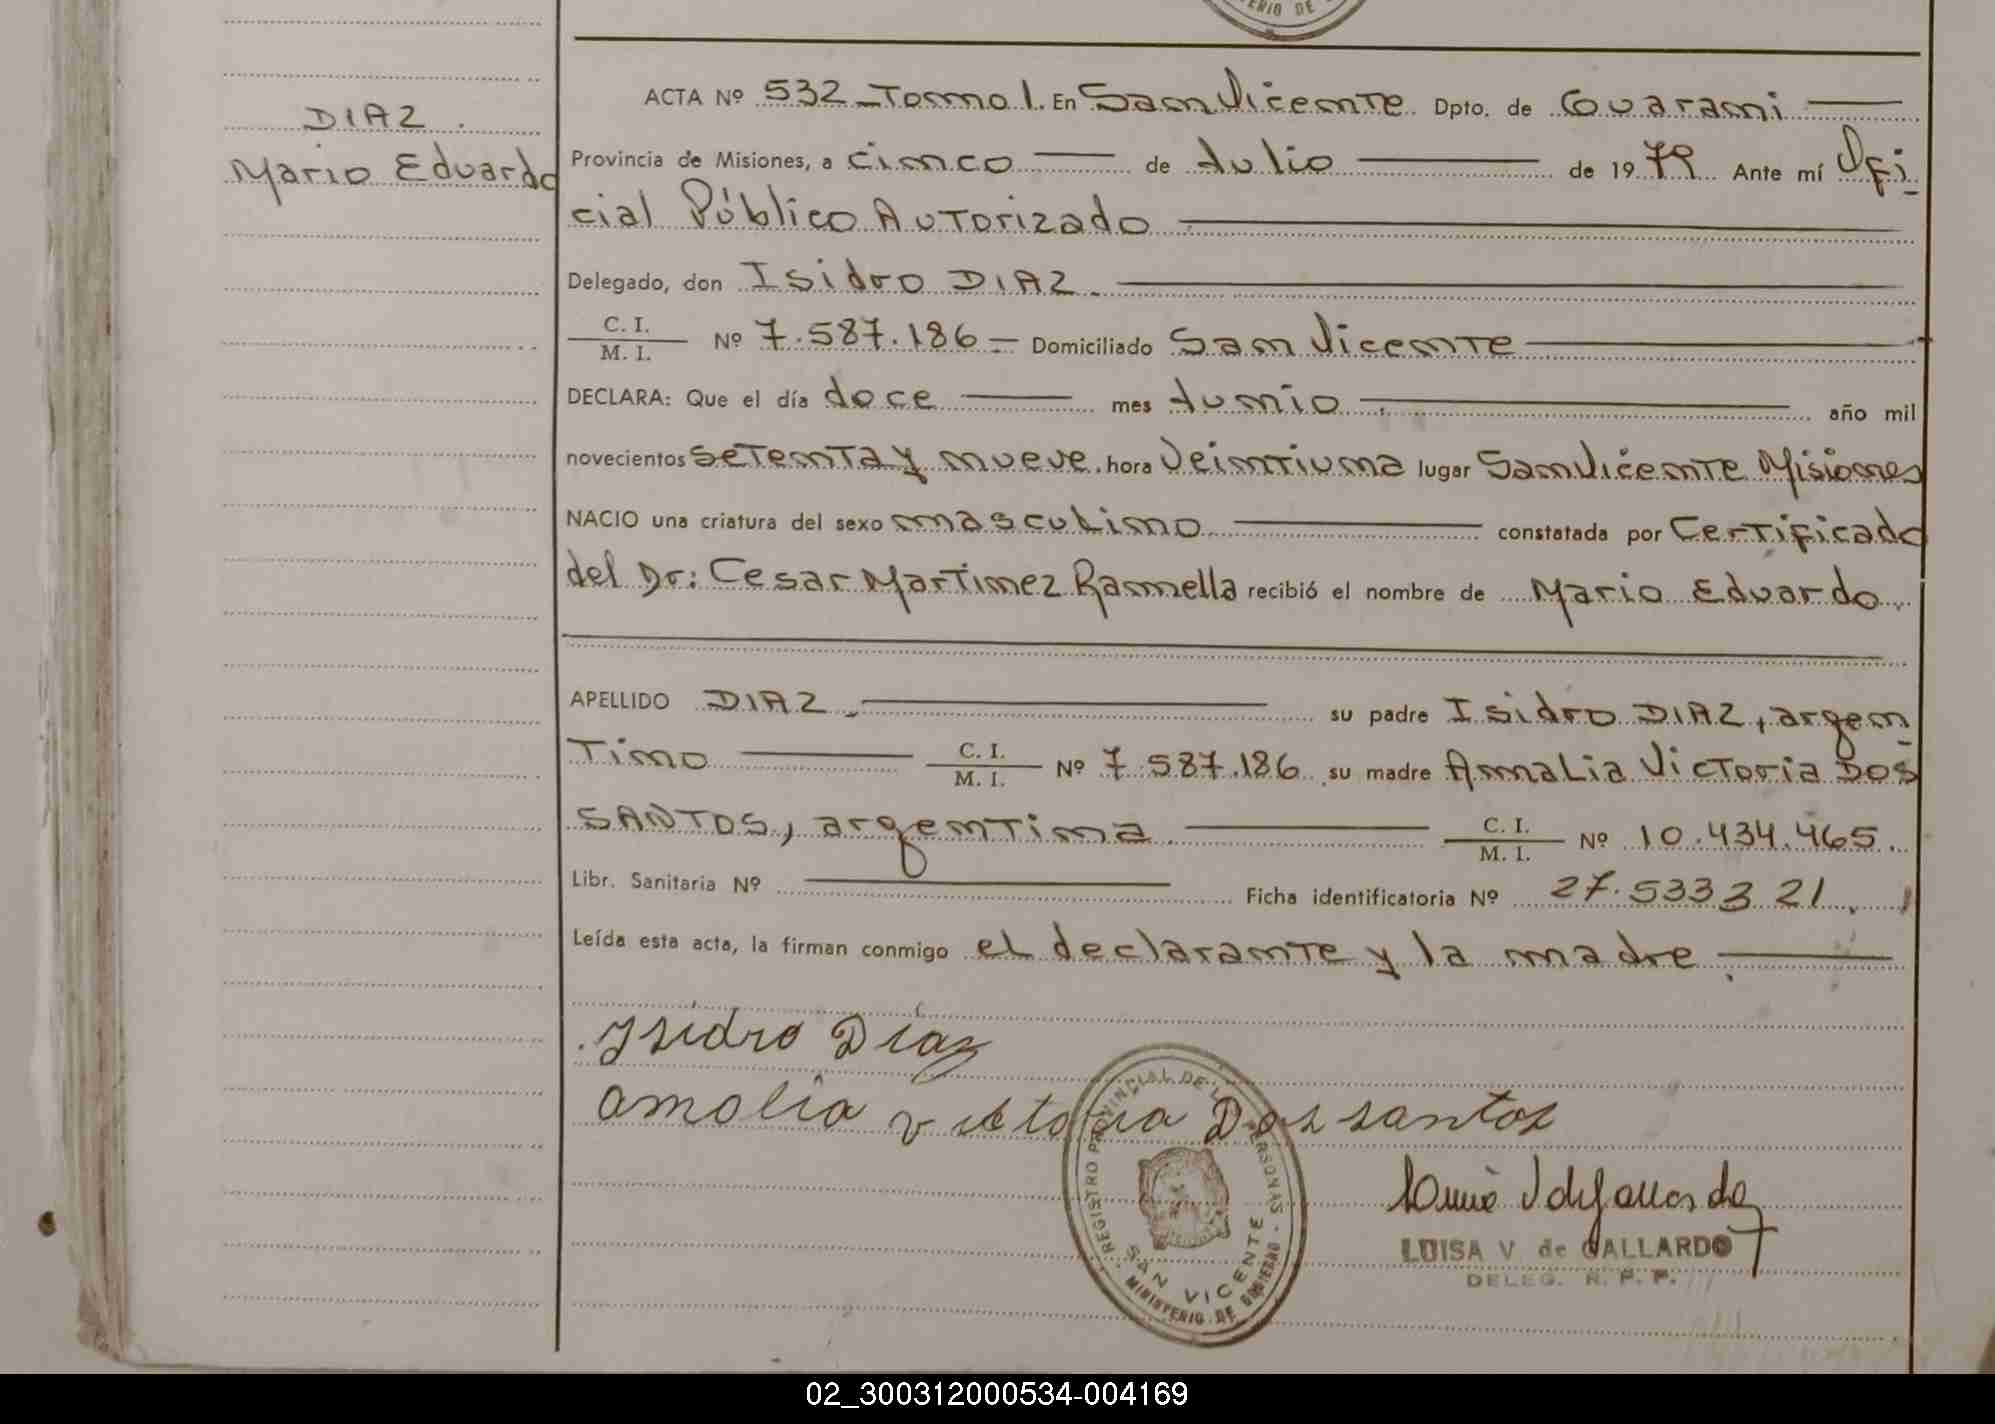 MINISTERIO DE
DIAZ.
Mario Eduardo
ACTA Nº 532 - Tomo 1. En San Vicente Dpto. de Guarani
Provincia de Misiones, a cinco de Julio de 1979 Ante mí Ofi-
cial Público Autorizado
Delegado, don Isidro DIAZ.
C. I. / M. I. Nº 7.587.186 = Domiciliado San Vicente
DECLARA: Que el día doce mes Junio año mil
novecientos setenta y nueve. hora Veintiuna lugar San Vicente Misiones
NACIO una criatura del sexo masculino constatada por Certificado
del Dr: Cesar Martinez Ramella recibió el nombre de Mario Eduardo
APELLIDO DIAZ su padre Isidro DIAZ, argen
tino C. I. / M. I. Nº 7 587.186 su madre Amalia Victoria DOS
SANTOS, argentina C. I. / M. I. Nº 10.434.465.
Libr. Sanitaria Nº Ficha identificatoria Nº 27.533321.
Leída esta acta, la firman conmigo el declarante y la madre
Isidro Díaz
amalia victoria Dos santos
REGISTRO PROVINCIAL DE LAS PERSONAS
SAN VICENTE
MINISTERIO DE GOBIERNO
LUISA V. de GALLARDO
DELEG. R. P. P.
02_300312000534-004169